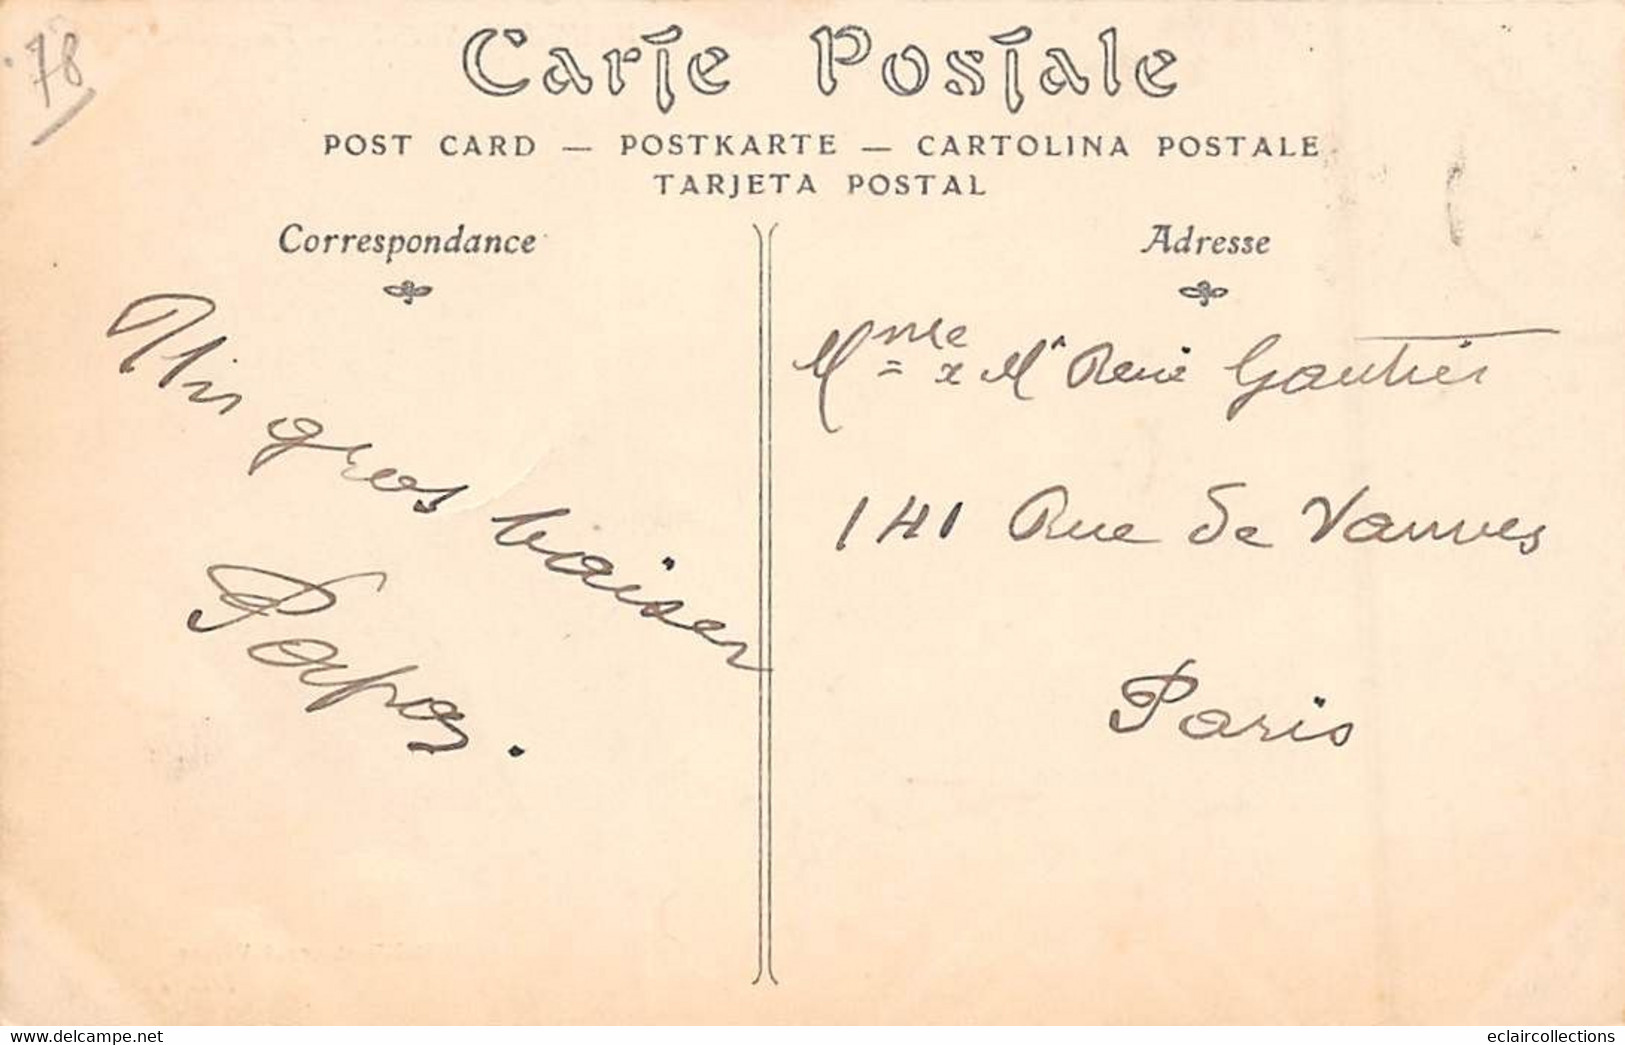 78
Carte Postale
POST CARD — POSTKARTE — CARTOLINA POSTALE
TARJETA POSTAL
Correspondance
Un gros baiser
Papa.
Adresse
Mme & Mr René Gautier
141 Rue de Vanves
Paris
www.delcampe.net
eclaircollections